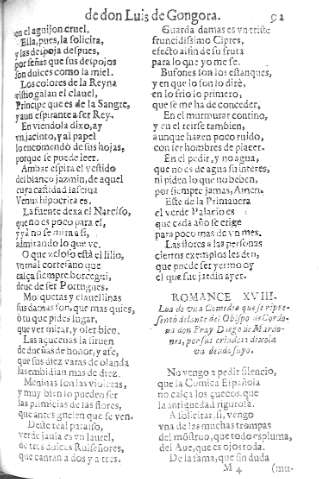 de don Luis de Gongora.
92
en el aguijon cruel.
Ella, pues, la solicita,
y las despoja despues,
por señas que sus despojos
son dulces como la miel.
Los colores de la Reyna
vistio galan el clauel,
Principe que es de la Sangre,
y aun espirante a ser Rey.
En viendola dixo, ay
vn jacinto, y al papel
lo encomendò de sus hojas,
porque se puede leer.
Ambar espira el vestido
del blanco jazmin, de aquel
cuya castidad lasciua
Venus hipocrita es.
La fuente dexa el Narciso,
que no es poco para el,
y ya no se mira a si,
admirando lo que ve.
O que zeloso està el lilio,
vn mal cortesano que
calça siempre borcegui,
deue de ser Portugues.
Mosquetas y clauellinas
sus damas son, que mas quies,
o tu que pides lugar,
que ver mirar, y oler bien.
Las açucenas la siruen
de dueñas de honor, y a fe,
que sus diez varas de olanda
las embidian mas de diez.
Meninas son las violetas,
y muy bien lo pueden ser
las primicias de las flores,
que antes guelen que se ven.
Deste real paraiso,
verde jaula es vn laurel,
de tres dulces Ruiseñores,
que cantan a dos y a tres.
Guarda damas es vn triste
fruncidissimo Cipres,
efecto al fin de su fruta
para lo que yo me se.
Bufones son los estanques,
y en que lo son lo dirè,
en lo frio lo primero,
que se me ha de conceder,
En el murmurar contino,
y en el reirse tambien,
aunque hazen poco ruido,
con ser hombres de placer.
En el pedir, y no agua,
que no es de agua su interes,
ni piden lo que no beben,
por siempre jamas, Amen.
Este de la Primauera
el verde Palacio es
que cada año se erige
para poco mas de vn mes.
Las flores a las personas
ciertos exemplos les den,
que puede ser yermo oy
el que fue jardin ayer.
ROMANCE XVIII.
Loa de vna Comedia que se representò delante del Obispo de Cordoua
don Fray Diego de Mardones,
No vengo a pedir silencio,
que la Comica Española
no calça los çuecos, que
la antiguedad rigurosa.
A solicitar si, vengo
vna de las muchas trompas
del mõstruo, que todo es pluma,
del Aue, que es ojos toda.
De la fama, que sin duda
M 4
(mu-